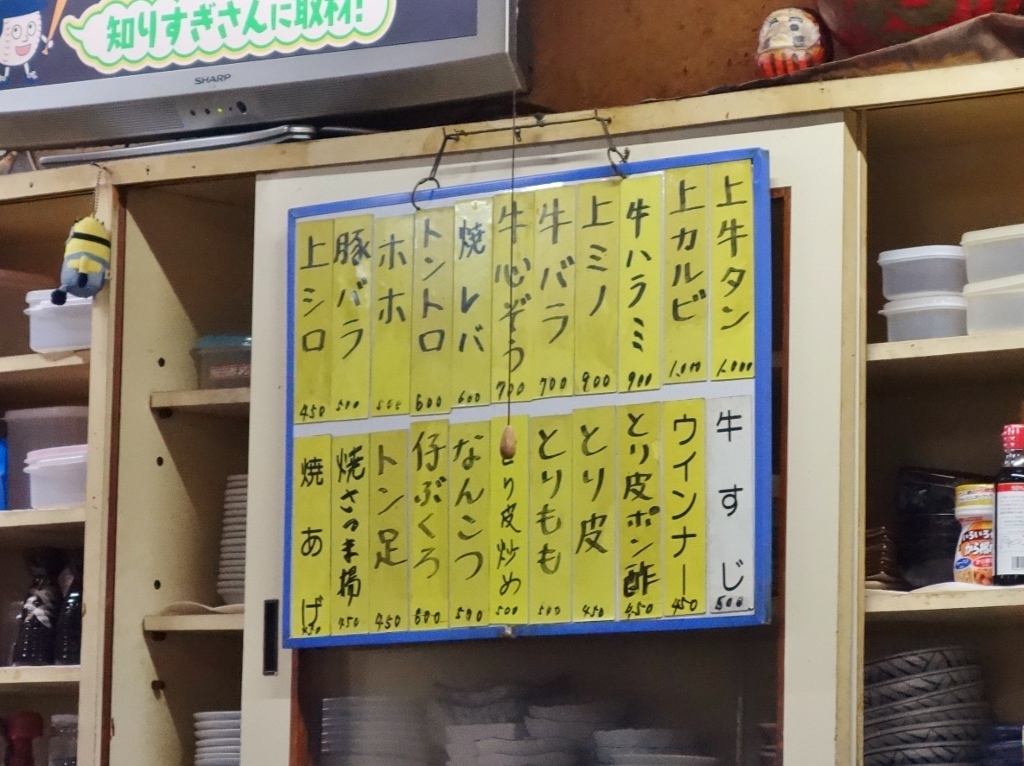 知りすぎさんに取材!
SHARP
上牛タン 1,000
上カルビ 1,000
牛ハラミ 900
上ミノ 900
牛バラ 700
牛心ぞう 700
焼レバ 600
トントロ 600
ホホ 500
豚バラ 500
上シロ 450
牛すじ 500
ウインナー 450
とり皮ポン酢 450
とり皮 450
とりもも 500
とり皮炒め 500
なんこつ 500
仔ぶくろ 600
トン足 450
焼さつま揚 450
焼あげ